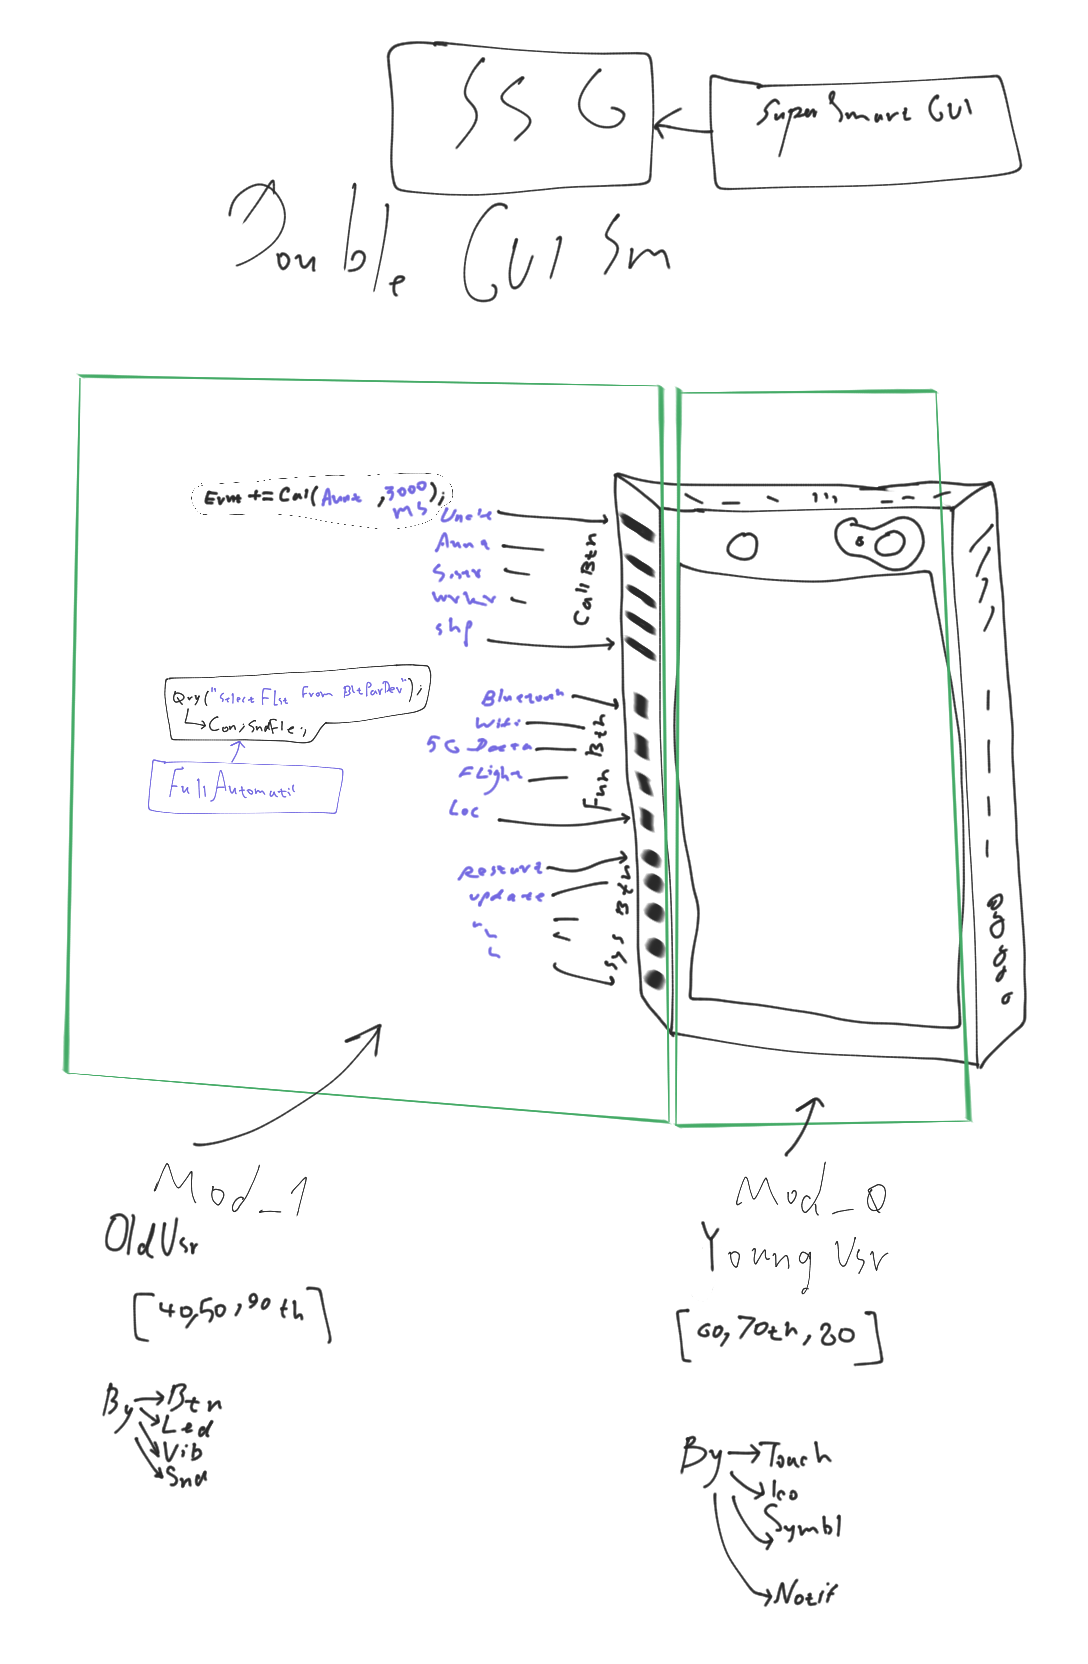 SSG
Super Smart GUI
Double GUI Sm
Evnt += Call(Aunt ,3000
ms);
Uncle
Anna
wrkr
shp
Call Btn
Qry("Select FLst From BltParDev");
Con;SndFle;
Full Automatic
Bluetooth
Wifi
5G Daata
FLight
Loc
Fun Btn
Restart
update
Sys Btn
Mod_1
Old Usr
[40,50,90th]
By Btn
Led
Vib
Snd
Mod_0
Young Usr
[60,70th,80]
By Touch
Ico
Symbl
Notif